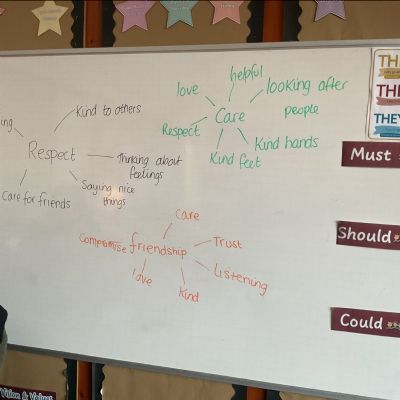 Kind to others
Respect
Thinking about
feelings
Saying nice
things
Care for friends
helpful
love
looking after
people
Respect
Care
Kind hands
Kind feet
Care
Compromise
friendship
Trust
Listening
love
Kind
THEY
Must
Should
Could
Vision & Values